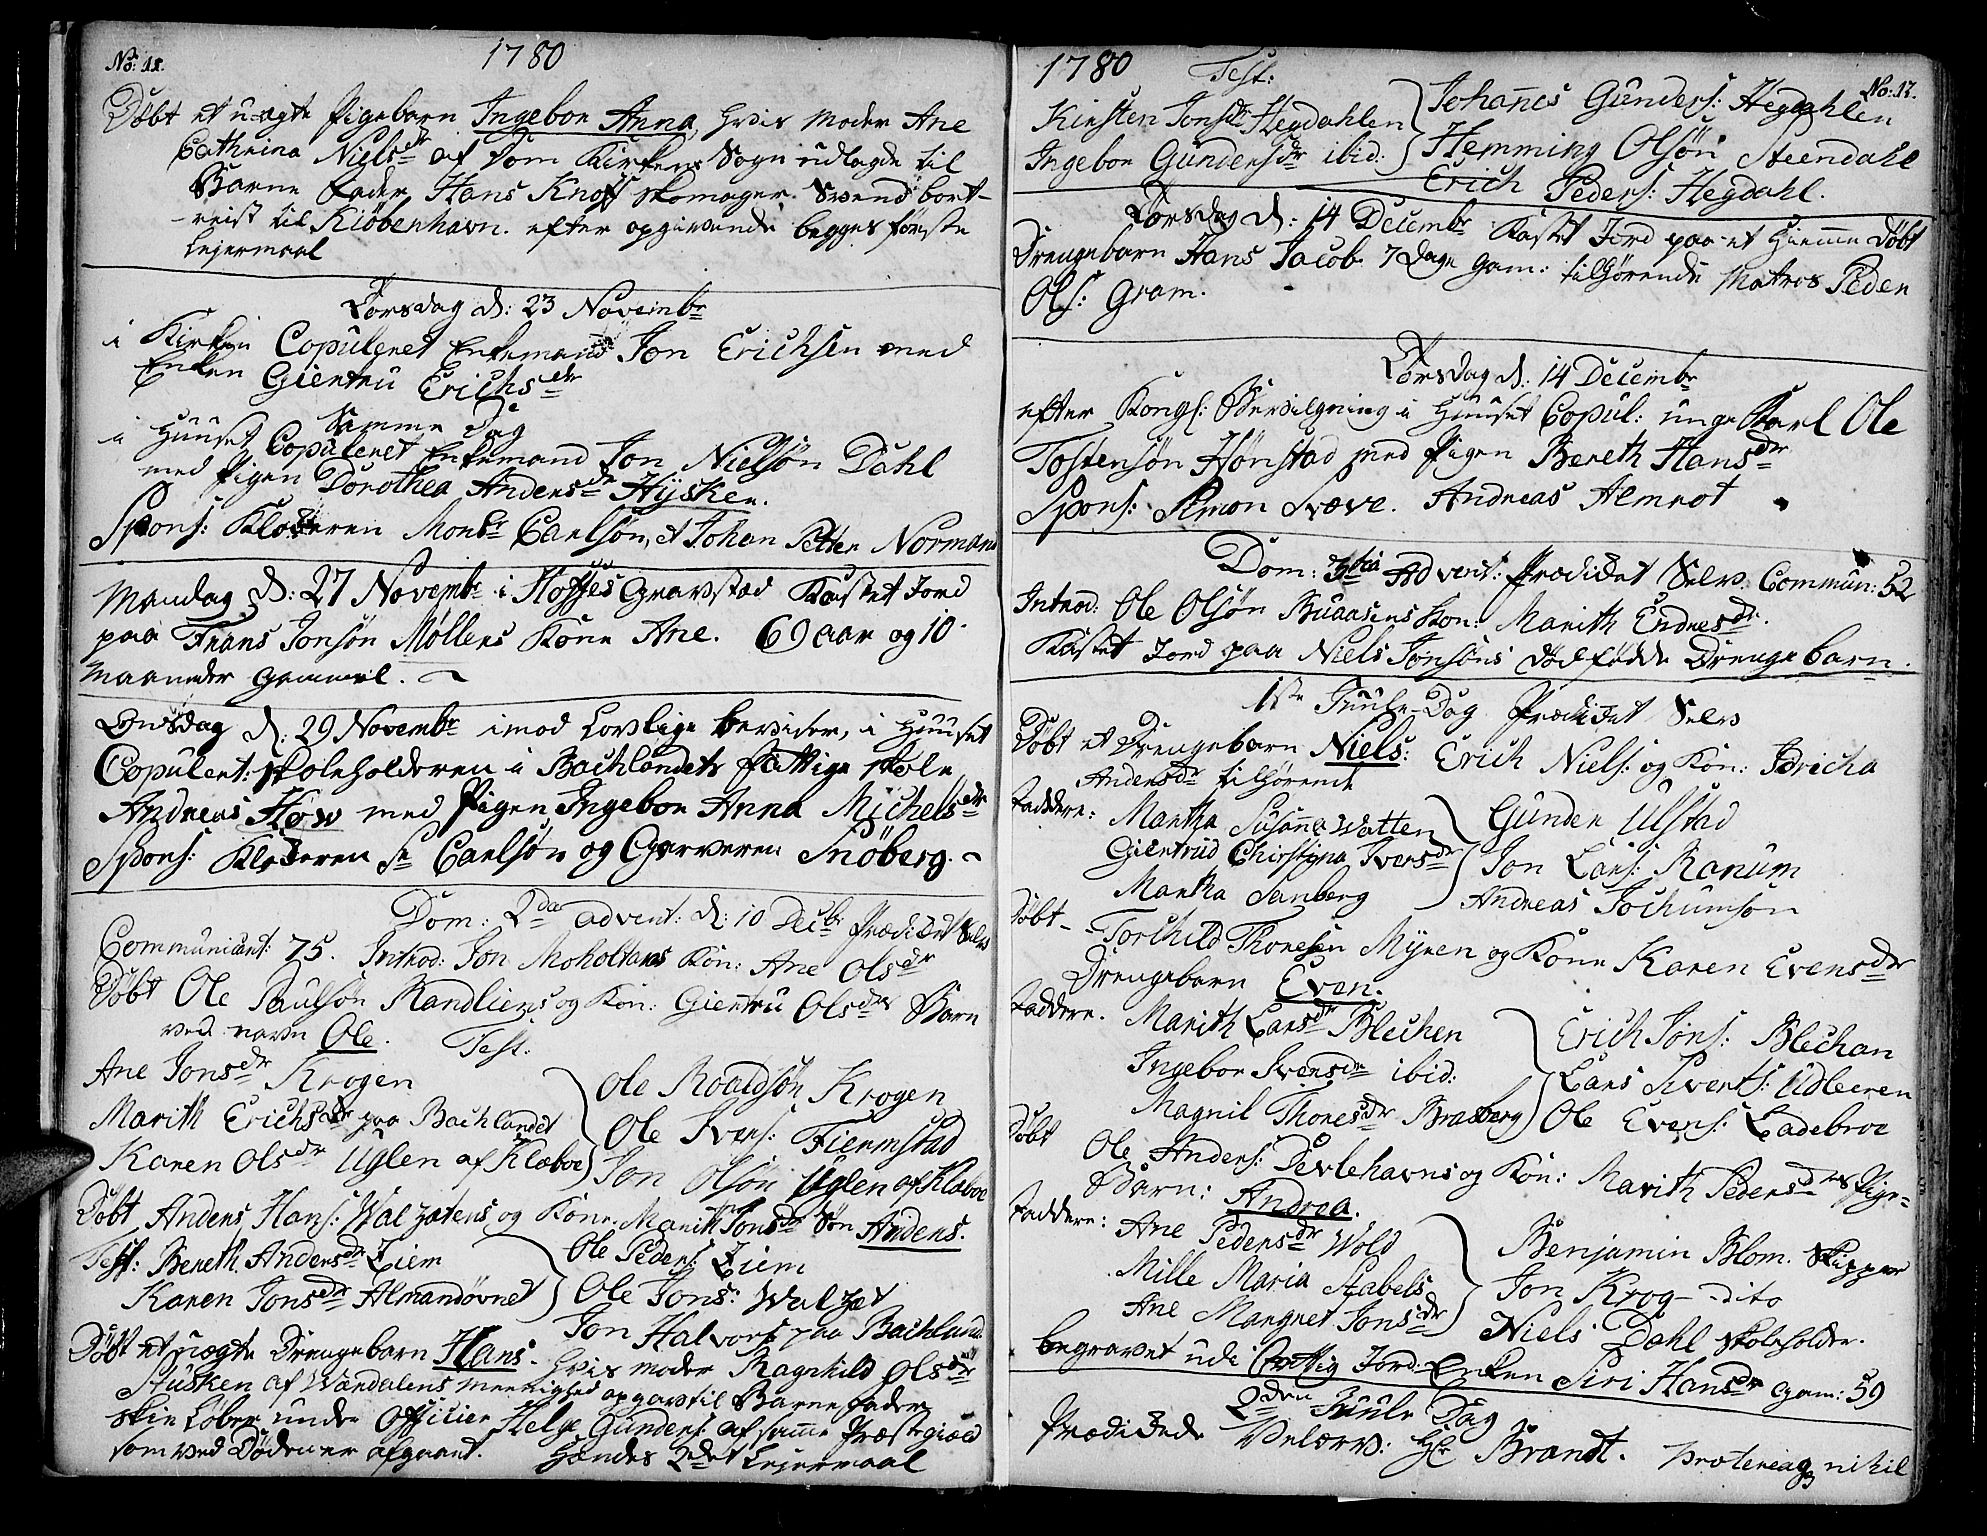 No: 11.
1780
Døbt et uægte Pigebarn Ingebor Anna, hvis Moder Ane
Cathrina Nielsdr af Dom Kirkens Sogn udlagde til
Barne Fader Hans Knoff skomager Svend bort-
-reist til Kiøbenhavn. efter opgivende begges første
Lejermaal
Torsdag d: 23 Novembr
i Kirken Copuleret Enkemand Jon Erichsen med
Enken Giertru Erichsdr
Samme Dag
i Huuset Copuleret Enkemand Jon Nielsøn Dahl
med Pigen Dorothea Andersdr Hysker.
Spons: Klokeren Monsr Carlsøn, et Johan Petter Normand
Mandag d: 27 Novembr i Gravsted Kastet Jord
paa Frans Jonsøn Møllers Kone Ane. 69 aar og 10
Maaneder gammel.
Onsdag d: 29 Novembr imod Lovlige beviser, i Huuset
Copulert: skoleholderen i Bachlandets fattige skole
Andreas How med Pigen Ingebor Anna Michelsdr
Spons: Klokeren Sr Carlsøn og Garveren Snøberg.
Dom: 2da advent: d: 10 Decbr Prædiket Selv
Communicant: 75. Introd: Jon Moholtans Kon: Ane Olsdr
Døbt Ole Paulsøn Randliens og Kon: Giertru Olsdrs Barn
ved navn Ole. Test:
Ane Jonsdr Krogen
Marith Erichsdr paa Bachlandet
Karen Olsdr Uglen af Klæboe
Ole Roaldsøn Krogen
Ole Ivers: Fiermstad
Jon Olsøn Uglen af Klæboe
Døbt Anders Hans: Walsætens og Kone Marith Jonsdr Søn Anders.
Test: Bereth Andersdr Ziem
Karen Jonsdr Almandøvnet
Ole Peders: Ziem
Ole Jons: Walset
Jon Halvors: paa Bachland.
Døbt et uægte Drengebarn Hans. hvis moder Ragnhild Olsdr
Husken af Værdalens Meenighed opgav til Barne Fader
skie Løber under Officier Helge Gunders: af samme Præstegield
som ved Døden er afgaaet. Hendes 2det Lejermaal
1780
No: 12.
Test:
Kirsten Jonsdr Hegdahlen
Ingebor Gundersdr ibid:
Johanes Gunders: Hegdahlen
Hemming Olsøn Steendahl
Erich Peders: Hegdahl.
Torsdag d: 14 Decembr Kastet Jord paa et Hjemme Døbt
Drengebarn Hans Jacob 7 Dage Gam: tilhørende Matros Peder
Ols: Gram.
Torsdag d: 14 Decembr
efter Kongl: Bevilgning i Huuset Copul: unge Karl Ole
Tostensøn Hønstad med Pigen Bereth Hansdr
Spons: Simon Svæve. Andreas Almrot
Dom: 3tia Advent: Prædiket Selv. Commun: 52
Introd: Ole Olsøn Buaasens Kon: Marith Endresdr.
Kastet Jord paa Niels Jonsøns dødfødde Drenge barn.
1ste Juule-Dag Prædiket Selv
Døbt et Drengebarn Niels: Erich Niels: og Kon: Idricha
Andersdr tilhørende
Faddere:
Martha Susanne Watten
Giertrud Chirstina Iversdr
Martha Sanberg
Gunder Ulstad
Jon Lars: Ranum
Andreas Jochumson
Døbt - Torchild Thoresen Myren og Kone Karen Evensdr
Drengebarn Even.
Faddere.
Marith Larsdr Blechen
Ingebor Iversdr ibid:
Magnil Thoresdr Braaberg
Erich Jons: Blechan
Lars Siverts: Udleeren
Ole Evens: Ladebroe
Døbt Ole Anders: Devlehavns og Kon: Marith Pedersdrs Pige-
Barn: Andrea.
Faddere:
Ane Pedersdr Wold
Mille Maria Stabels
Ane Margret Jonsdr
Benjamin Blom. skipper
Jon Krog - dito
Niels Dahl skoleholder.
begravet udi Jord: Enken Siri Hansdr gam: 59
2den Juule Dag
Prædikede Velærv: Hr Brandt. Prætereaq nihil